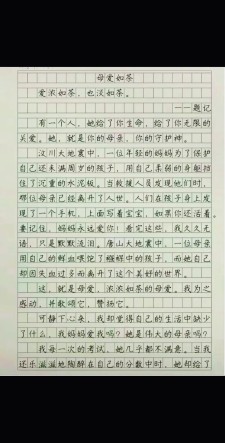 母爱如茶
爱浓如茶，也淡如茶。
——题记
有一个人，她给了你生命，给了你无限的
关爱。她，就是你的母亲，你的守护神。
汶川大地震中，一位年轻的妈妈为了保护
自己还未满周岁的孩子，用自己柔弱的身躯挡
住了沉重的水泥板。当救援人员发现他们时，
那位母亲已经离开了人世。人们在孩子身上发
现了一个手机，上面写着宝宝，如果你还活着，
要记住，妈妈永远爱你！看完这些，我久久无
语，只是默默流泪。唐山大地震中，一位母亲
用自己的鲜血喂饱了襁褓中的孩子，而她自己
却因失血过多而离开了这个美好的世界。
这，就是母爱，浓浓如茶的母爱。我为之
感动，并歌颂它，赞扬它。
可静下心来，我却觉得自己的生活中缺少
了什么，我妈妈爱我吗？她是伟大的母亲吗？
我每一次的考试，她几乎都不满意。当我
还乐滋滋地陶醉在自己的分数中时，她却给了